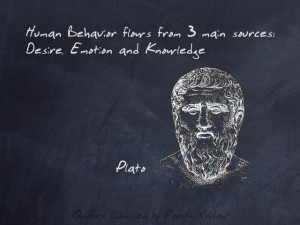 Human Behavior flows from 3 main sources:
Desire, Emotion and Knowledge
Plato
Quotes Compiled by